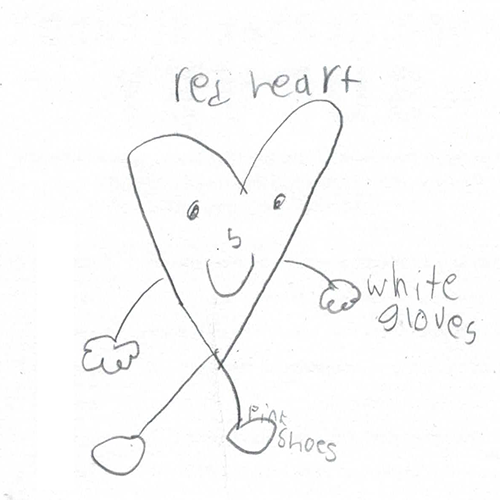 red heart
white
gloves
Pink
shoes